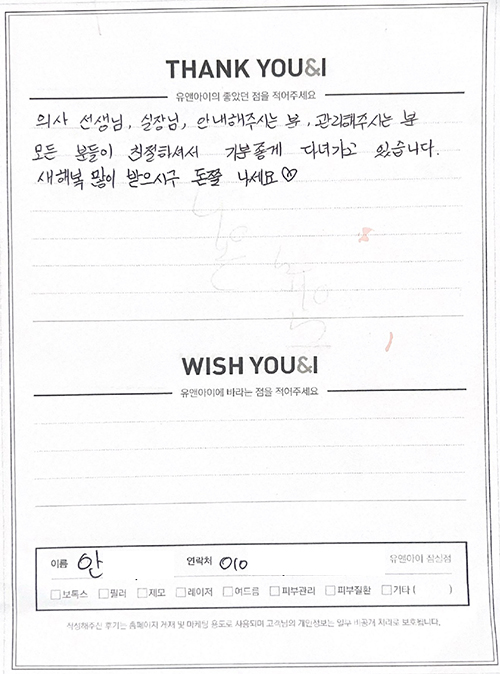 THANK YOU&I
유앤아이의 좋았던 점을 적어주세요
의사 선생님, 실장님, 안내해주시는 분, 관리해주시는 분
모든 분들이 친절하셔서 기분좋게 다녀가고 있습니다.
새해복 많이 받으시구 돈쭐 나세요♡
WISH YOU&I
유앤아이에 바라는 점을 적어주세요
이름 안 연락처 010 유앤아이 잠실점
보톡스 필러 제모 레이저 여드름 피부관리 피부질환 기타 ( )
작성해주신 후기는 홈페이지 게재 및 마케팅 용도로 사용되며 고객님의 개인정보는 일부 비공개 처리로 보호됩니다.